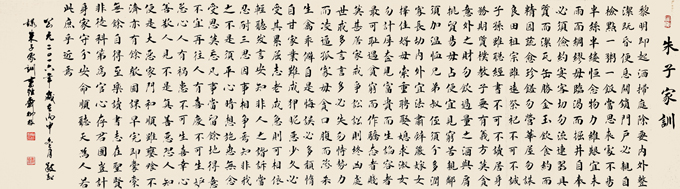 朱子家訓
黎明即起洒掃庭除要內外整
潔既昏便息關鎖門戶必親自
檢點一粥一飯當思來處不易
半絲半縷恒念物力維艱宜未
雨而綢繆毋臨渴而掘井自奉
必須儉約宴客切勿流連器具
質而潔瓦缶勝金玉飲食約而
精園蔬愈珍饈勿營華屋勿謀
良田祖宗雖遠祭祀不可不誠
子孫雖愚經書不可不讀居身
務期質樸教子要有義方莫貪
意外之財勿飲過量之酒與肩
挑貿易毋占便宜見窮苦親鄰
須加溫恤兄弟叔侄須分多潤
寡長幼內外宜法肅辭嚴嫁女
擇佳婿毋索重聘娶媳求淑女
勿計厚奩見富貴而生諂容者
最可恥遇貧窮而作驕態者賤
莫甚居家戒爭訟訟則終凶處
世戒多言言多必失勿恃勢力
而凌逼孤寡毋貪口腹而恣殺
生禽乖僻自是悔誤必多頹惰
自甘家業難成狎昵惡少久必
受其累屈志老成急則可相依
輕聽發言安知非人之譖訴當
忍耐三思因事相爭焉知非我
之不是須平心暗想施惠無念
受恩莫忘凡事當留餘地得意
不宜再往人有喜慶不可生妒
忌心人有禍患不可生喜幸心
善欲人見不是真善惡恐人知
便是大惡家門和順雖饔飧不
濟亦有餘歡國課早完即囊橐
無餘自得至樂讀書志在聖賢
非徒科第為官心存君國豈計
身家守分安命順時聽天為人若
此庶乎近焉
公元二〇一六年歲在丙申
錄朱子家訓